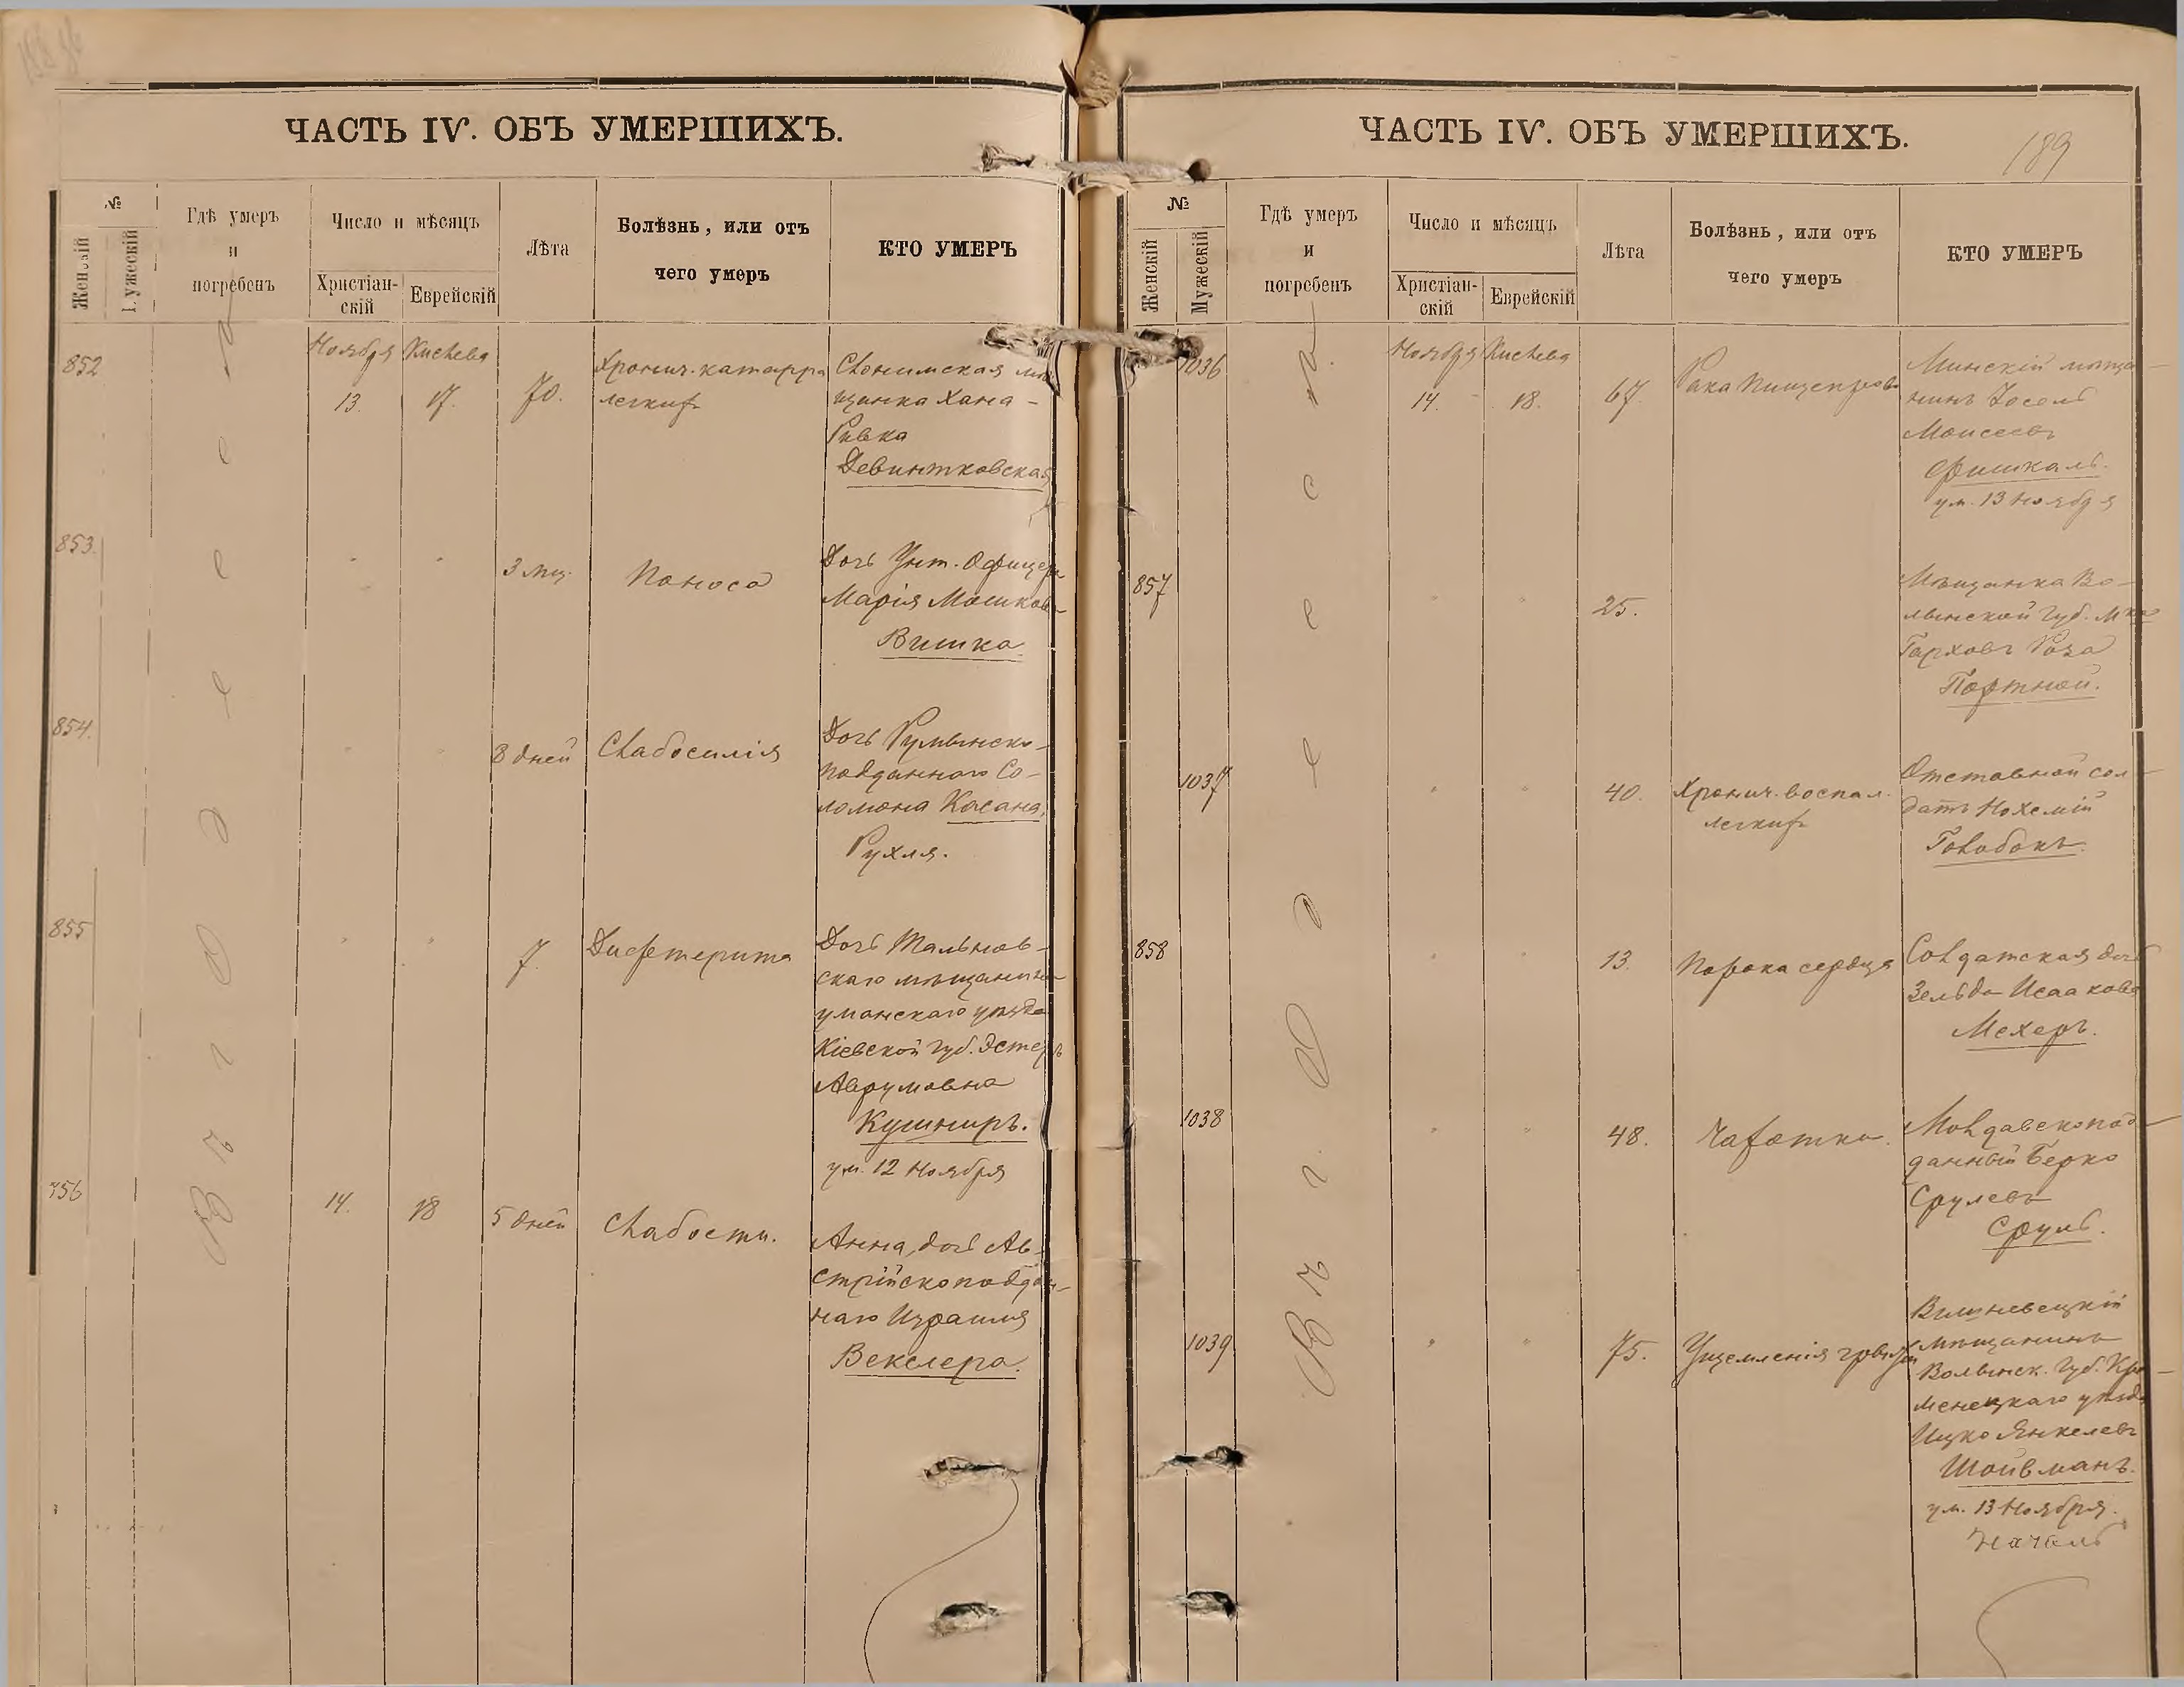 ЧАСТЬ IV. ОБЪ УМЕРШИХЪ.
№
Женскій
Мужескій
Гдѣ умеръ
и
погребенъ
Число и мѣсяцъ
Христіан-
скій
Еврейскій
Лѣта
Болѣзнь, или отъ
чего умеръ
КТО УМЕРЪ
Въ г. Одессѣ
852
Ноября
13.
Кислева
17.
70.
Хронич. катарра
легкихъ
Слонимская мѣ
щанка Хана –
Ривка
Левинтковская
853.
" "
3 мѣс.
Поноса
Дочь Унт. Офицера
Марія Мошкова
Вишка.
854.
" "
8 дней
Слабосилія
Дочь Румынско-
подданнаго Со-
ломона Касана,
Рухля.
855
" "
7.
Дифтерита
Дочь Тальнов-
скаго мѣщанина
уманскаго уѣзда
Кіевской губ. Эстеръ
Аврумовна
Кушниръ.
ум. 12 Ноября
856
14.
18
5 дней
Слабости.
Анна, дочь Ав-
стрійскоподдан-
наго Израиля
Векслера.
ЧАСТЬ IV. ОБЪ УМЕРШИХЪ.
189
№
Женскій
Мужескій
Гдѣ умеръ
и
погребенъ
Число и мѣсяцъ
Христіан-
скій
Еврейскій
Лѣта
Болѣзнь, или отъ
чего умеръ
КТО УМЕРЪ
Въ г. Одессѣ
1036
Ноября
14.
Кислева
18.
67.
Рака пищепров.
Минскій мѣща-
нинъ Іосель
Моисеевъ
Фишкаль.
ум. 13 Ноября
857
" "
25.
Мѣщанка Во-
лынской губ. М-ка
Роза
Портной.
1037
" "
40.
Хронич. воспал.
легкихъ
Отставной сол-
датъ Нохемій
Голобокъ.
858
" "
13.
Порока сердца
Солдатская дочь
Зельда Исаакова
Мехеръ.
1038
" "
48.
Чахотки.
Молдавскопод-
данный Берко
Срулевъ
Сруль.
1039
" "
75.
Ущемленія грыжи
Вишневецкій
мѣщанинъ
Волынск. губ. Кре-
менецкаго уѣзда
Ицко Янкелевъ
Шойвманъ.
ум. 13 Ноября.